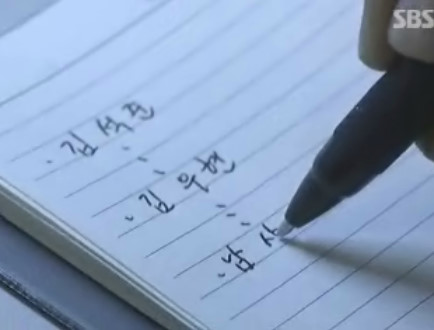 SBS
· 김 석준
· 김 우현
· 남 사